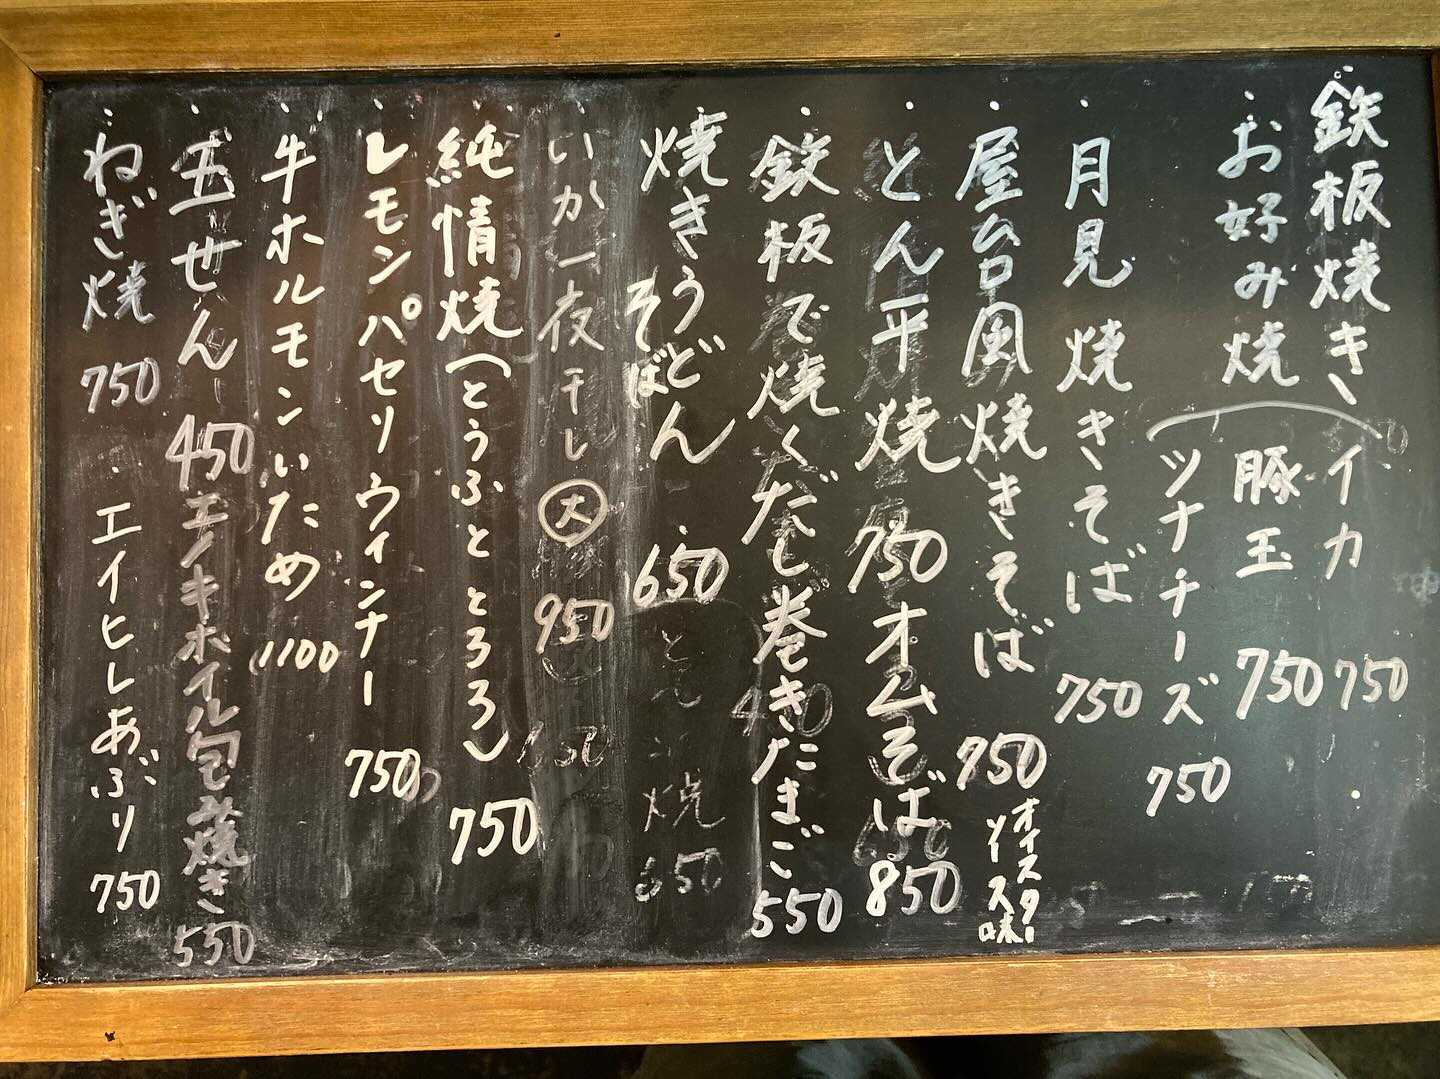 ・鉄板焼き
・お好み焼
イカ 750
豚玉 750
ツナチーズ 750
・月見焼きそば 750
・屋台風焼きそば 750 オイスターソース味
・とん平焼 750 オムそば 850
・鉄板で焼くだし巻きたまご 550
・焼きうどん
そば
・650
・いか一夜干し 大 950
・純情焼(とうふととろろ) 750
・レモンパセリウィンナー 750
・牛ホルモンいため 1100
・玉せん 450 エノキホイル包み焼き 550
・ねぎ焼 750 ・エイヒレあぶり 750